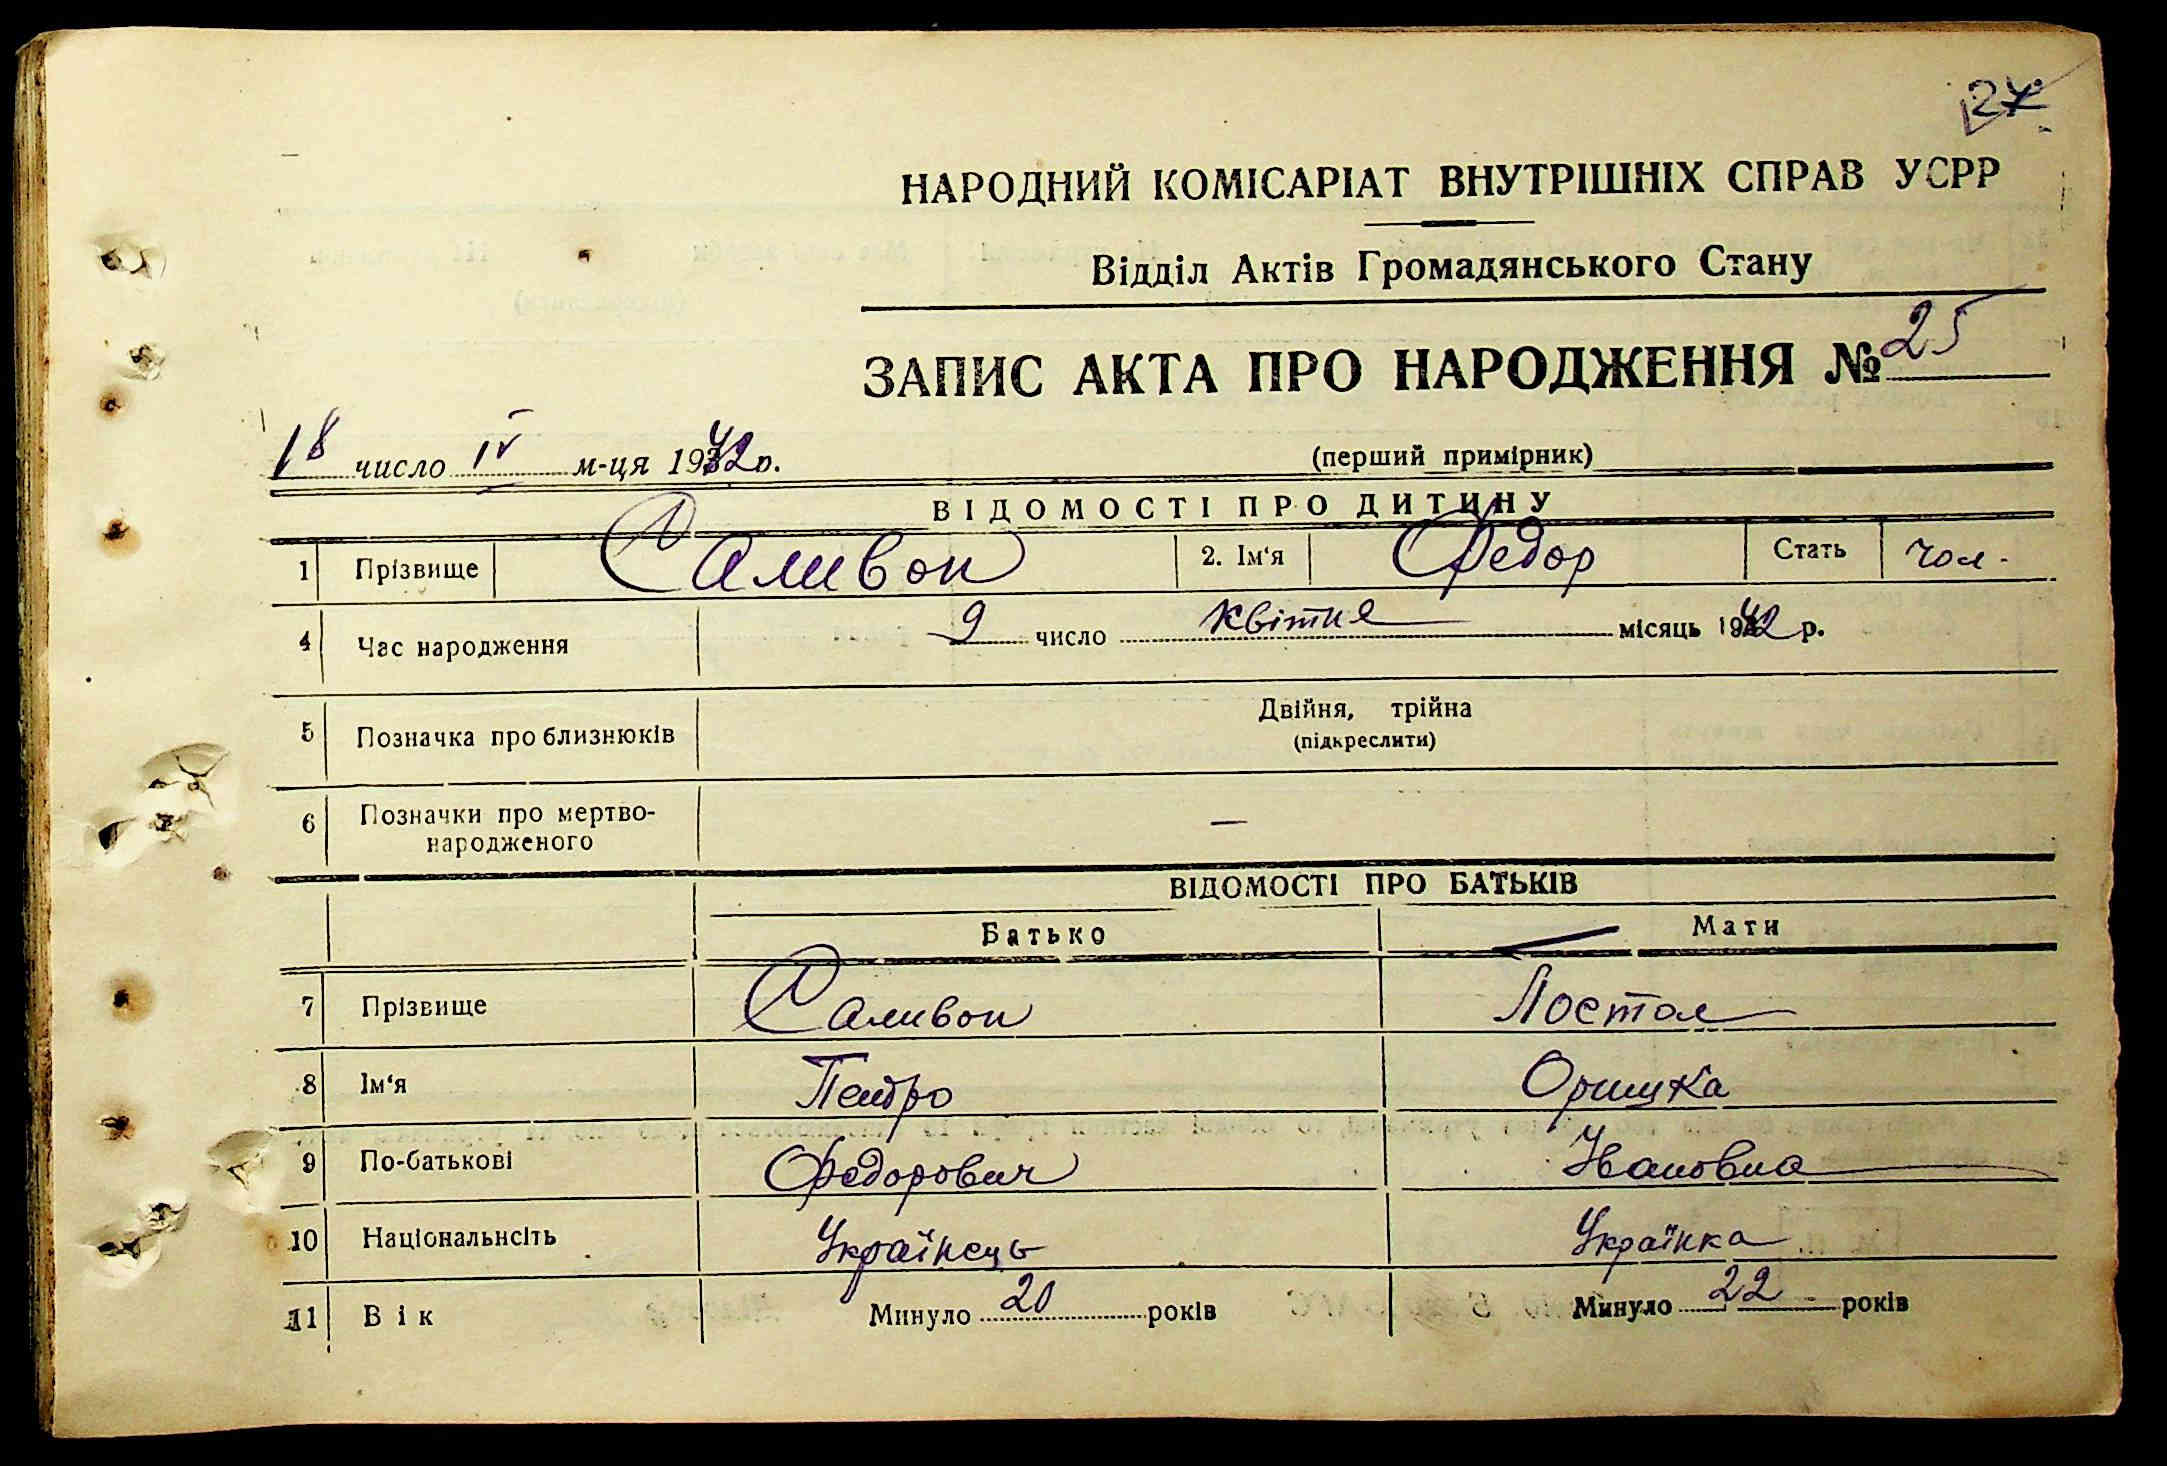 НАРОДНИЙ КОМІСАРІАТ ВНУТРІШНІХ СПРАВ УСРР
Відділ Актів Громадянського Стану
ЗАПИС АКТА ПРО НАРОДЖЕННЯ № 25
18 число IV м-ця 1942 р.
(перший примірник)
ВІДОМОСТІ ПРО ДИТИНУ
1 Прізвище Саливон 2. Ім‘я Федор Стать чол.
4 Час народження 9 число квітня місяць 1942 р.
5 Позначка про близнюків Двійня, трійна
(підкреслити)
6 Позначки про мертво- —
народженого
ВІДОМОСТІ ПРО БАТЬКІВ
Батько Мати
7 Прізвище Саливон Постол
8 Ім‘я Петро Оришка
9 По-батькові Федорович Івановна
10 Національнсіть Українець Українка
11 Вік Минуло 20 років Минуло 22 років